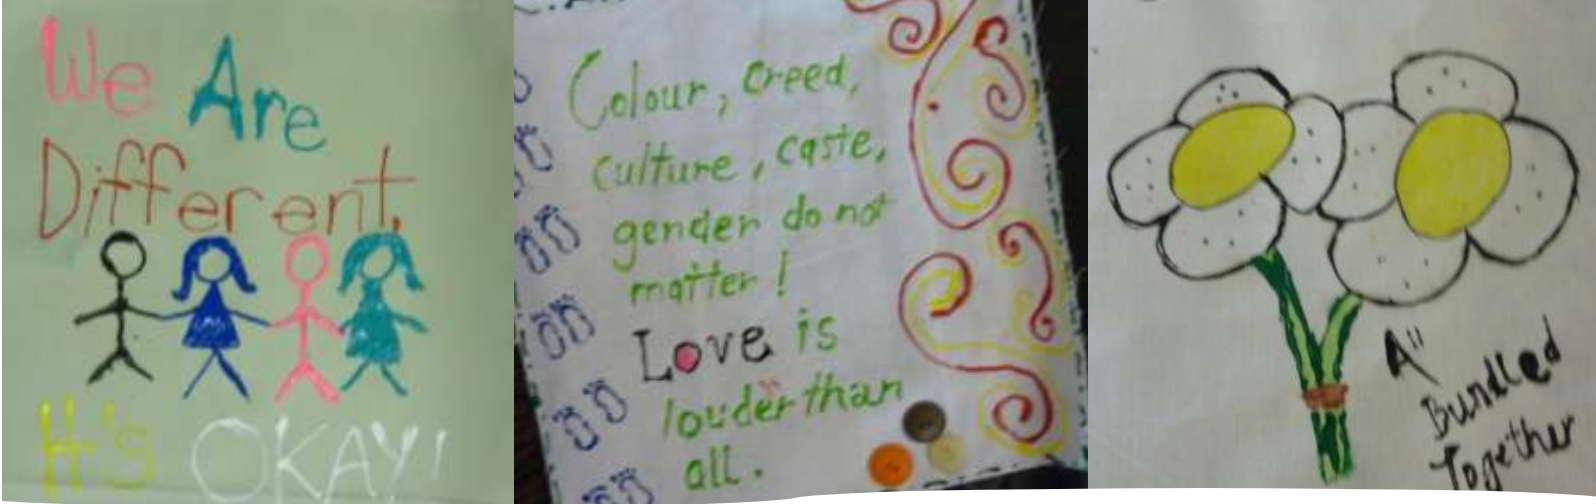 We Are
Different.
It's OKAY!
Colour, creed,
culture, caste,
gender do not
matter!
Love is
louder than
all.
All
Bundled
Together